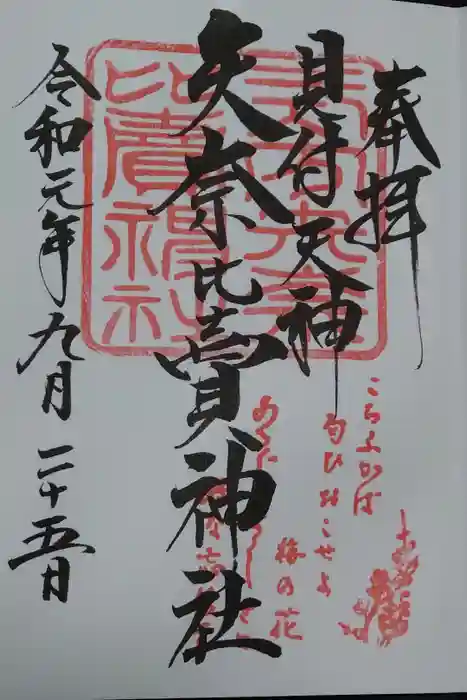 奉拝
見付天神
矢奈比賣神社
令和元年九月二十五日
こちふかば
匂ひおこせよ
梅の花